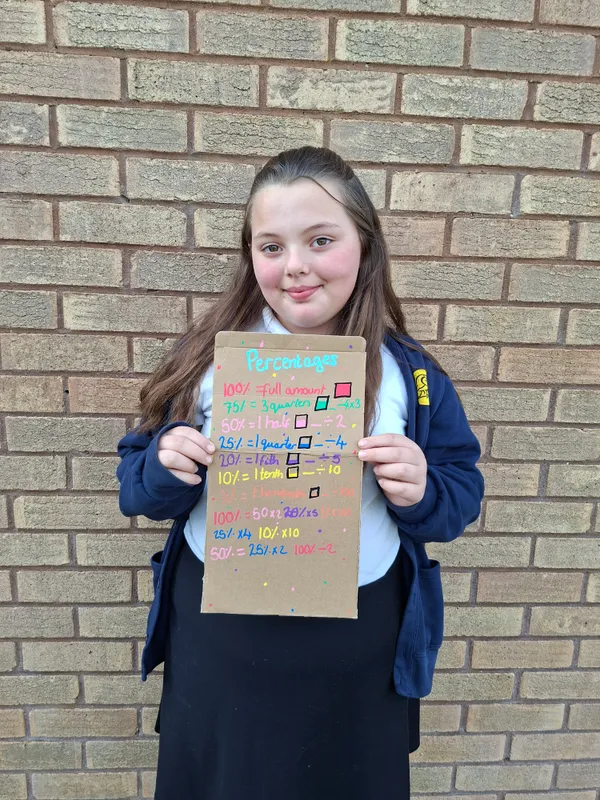 Percentages
100% = full amount
75% = 3 quarters _ ÷4x3
50% = 1 half _ ÷ 2
25% = 1 quarter _ ÷ 4
20% = 1 fith _ ÷ 5
10% = 1 tenth _ ÷ 10
100% = 50x2 20%x5
25%x4 10%x10
50% = 25%x2 100%÷2